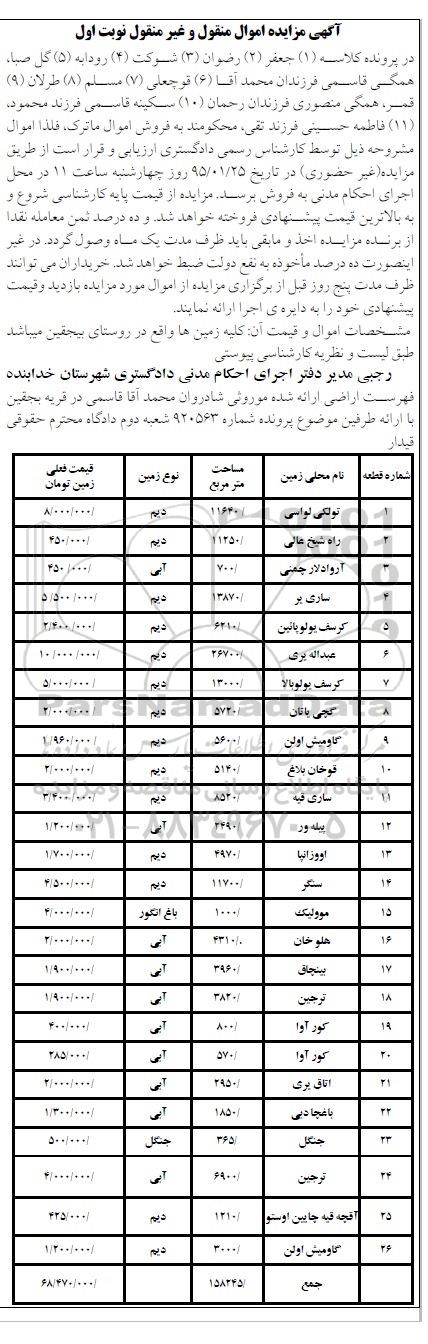 آگهی مزایده اموال منقول و غیر منقول نوبت اول
در پرونده کلاسه (۱) جعفر (۲) رضوان (۳) شوکت (۴) رودابه (۵) گل صبا،
همگی قاسمی فرزندان محمد آقا (۶) قوچعلی (۷) مسلم (۸) طرلان (۹)
قمر، همگی منصوری فرزندان رحمان (۱۰) سکینه قاسمی فرزند محمود،
(۱۱) فاطمه حسینی فرزند تقی، محکومند به فروش اموال ماترک، فلذا اموال
مشروحه ذیل توسط کارشناس رسمی دادگستری ارزیابی و قرار است از طریق
مزایده(غیر حضوری) در تاریخ ۹۵/۰۱/۲۵ روز چهارشنبه ساعت ۱۱ در محل
اجرای احکام مدنی به فروش برسد. مزایده از قیمت پایه کارشناسی شروع و
به بالاترین قیمت پیشنهادی فروخته خواهد شد. و ده درصد ثمن معامله نقدا
از برنده مزایده اخذ و مابقی باید ظرف مدت یک ماه وصول گردد. در غیر
اینصورت ده درصد مأخوذه به نفع دولت ضبط خواهد شد. خریداران می توانند
ظرف مدت پنج روز قبل از برگزاری مزایده از اموال مورد مزایده بازدید وقیمت
پیشنهادی خود را به دایره ی اجرا ارائه نمایند.
مشخصات اموال و قیمت آن: کلیه زمین ها واقع در روستای بیجقین میباشد
طبق لیست و نظریه کارشناسی پیوستی
رجبی مدیر دفتر اجرای احکام مدنی دادگستری شهرستان خدابنده
فهرست اراضی ارائه شده موروثی شادروان محمد آقا قاسمی در قریه بجقین
با ارائه طرفین موضوع پرونده شماره ۹۲۰۵۶۳ شعبه دوم دادگاه محترم حقوقی
قیدار
شماره قطعه نام محلی زمین مساحت متر مربع نوع زمین قیمت فعلی زمین تومان
۱ تولکی لواسی ۱۱۶۴۰/ دیم ۸/۰۰۰/۰۰۰/
۲ راه شیخ عالی ۱۱۲۵۰/ دیم ۴۵۰/۰۰۰/
۳ آروادلار چمنی ۷۰۰/ آبی ۴۵۰/۰۰۰/
۴ ساری یر ۱۳۸۷۰/ دیم ۵/۵۰۰/۰۰۰/
۵ کرسف یولوپائین ۶۲۱۰/ دیم ۲/۴۰۰/۰۰۰/
۶ عبداله یری ۲۶۷۰۰/ دیم ۱۰/۰۰۰/۰۰۰/
۷ کرسف یولوبالا ۱۳۰۰۰/ دیم ۵/۰۰۰/۰۰۰/
۸ گچی یاتان ۵۷۲۰/ دیم ۲/۰۰۰/۰۰۰/
۹ گاومیش اولن ۵۶۰۰/ دیم ۱/۹۶۰/۰۰۰/
۱۰ قوخان بلاغ ۵۱۴۰/ دیم ۲/۰۰۰/۰۰۰/
۱۱ ساری قیه ۸۵۲۰/ دیم ۳/۴۰۰/۰۰۰/
۱۲ پیله ور ۲۴۹۰/ آبی ۱/۲۰۰/۰۰۰/
۱۳ اووزانپا ۴۹۷۰/ دیم ۱/۷۰۰/۰۰۰/
۱۴ سنگر ۱۱۷۰۰/ دیم ۴/۵۰۰/۰۰۰/
۱۵ موولیک ۱۰۰۰/ باغ انگور ۴/۰۰۰/۰۰۰/
۱۶ هلو خان ۴۳۱۰/. آبی ۲/۰۰۰/۰۰۰/
۱۷ بینچاق ۳۹۶۰/ آبی ۱/۹۰۰/۰۰۰/
۱۸ ترجین ۳۸۲۰/ آبی ۱/۹۰۰/۰۰۰/
۱۹ کور آوا ۸۰۰/ آبی ۴۰۰/۰۰۰/
۲۰ کور آوا ۵۷۰/ آبی ۲۸۵/۰۰۰/
۲۱ اتاق یری ۲۹۵۰/ آبی ۲/۰۰۰/۰۰۰/
۲۲ باغچا دبی ۱۸۵۰/ آبی ۱/۳۰۰/۰۰۰/
۲۳ جنگل ۳۶۵/ جنگل ۵۰۰/۰۰۰/
۲۴ ترجین ۶۹۰۰/ آبی ۴/۰۰۰/۰۰۰/
۲۵ آقچه قیه چایین اوستو ۱۲۱۰/ دیم ۴۲۵/۰۰۰/
۲۶ گاومیش اولن ۳۰۰۰/ دیم ۱/۲۰۰/۰۰۰/
جمع ۱۵۸۲۴۵/ ۶۸/۴۷۰/۰۰۰/
ParsNamadData